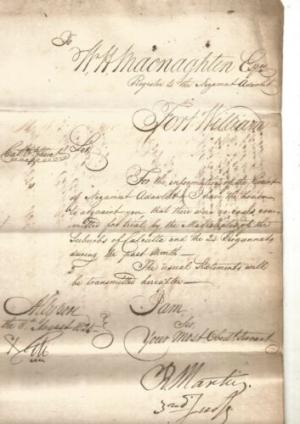 To
W H Macnaghten Esqr
Register to the Nizamut Adawlut
Fort William
Sir
For the information of the Court
of Nizamut Adawlut I have the honor
to acquaint you that there were no cases com
mitted for trial by the Magistrate of the
Suburbs of Calcutta and the 24 Pergunnahs
during the past Month
The usual Statements will
be transmitted hereafter
Allypore
the August
I am
Sir
Your Most Obedt Servant
R Martin
2nd Judge